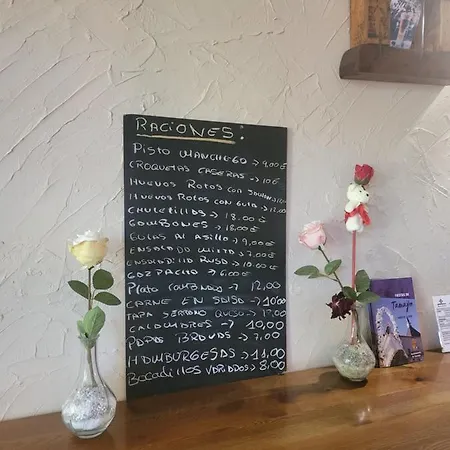 RACIONES:
PISTO MANCHEGO → 9,00€
CROQUETAS CASERAS → 10€
HUEVOS ROTOS CON
HUEVOS ROTOS CON GULA → 12,00
CHULETILLAS → 18.00€
GAMBONES → 18,00€
GULAS AL AJILLO → 9,00€
ENSALADA MIXTA → 7,00€
ENSALADILLA RUSA → 10.00€
GAZPACHO → 6,00€
PLATO COMBINADO → 12,00
CARNE EN SALSA → 10,00
TAPA SERRANO QUESO → 12,00
CALAMARES → 10,00
PAPAS BRAVAS → 7,00
HAMBURGESAS → 11,00
BOCADILLOS VARIADOS → 8,00